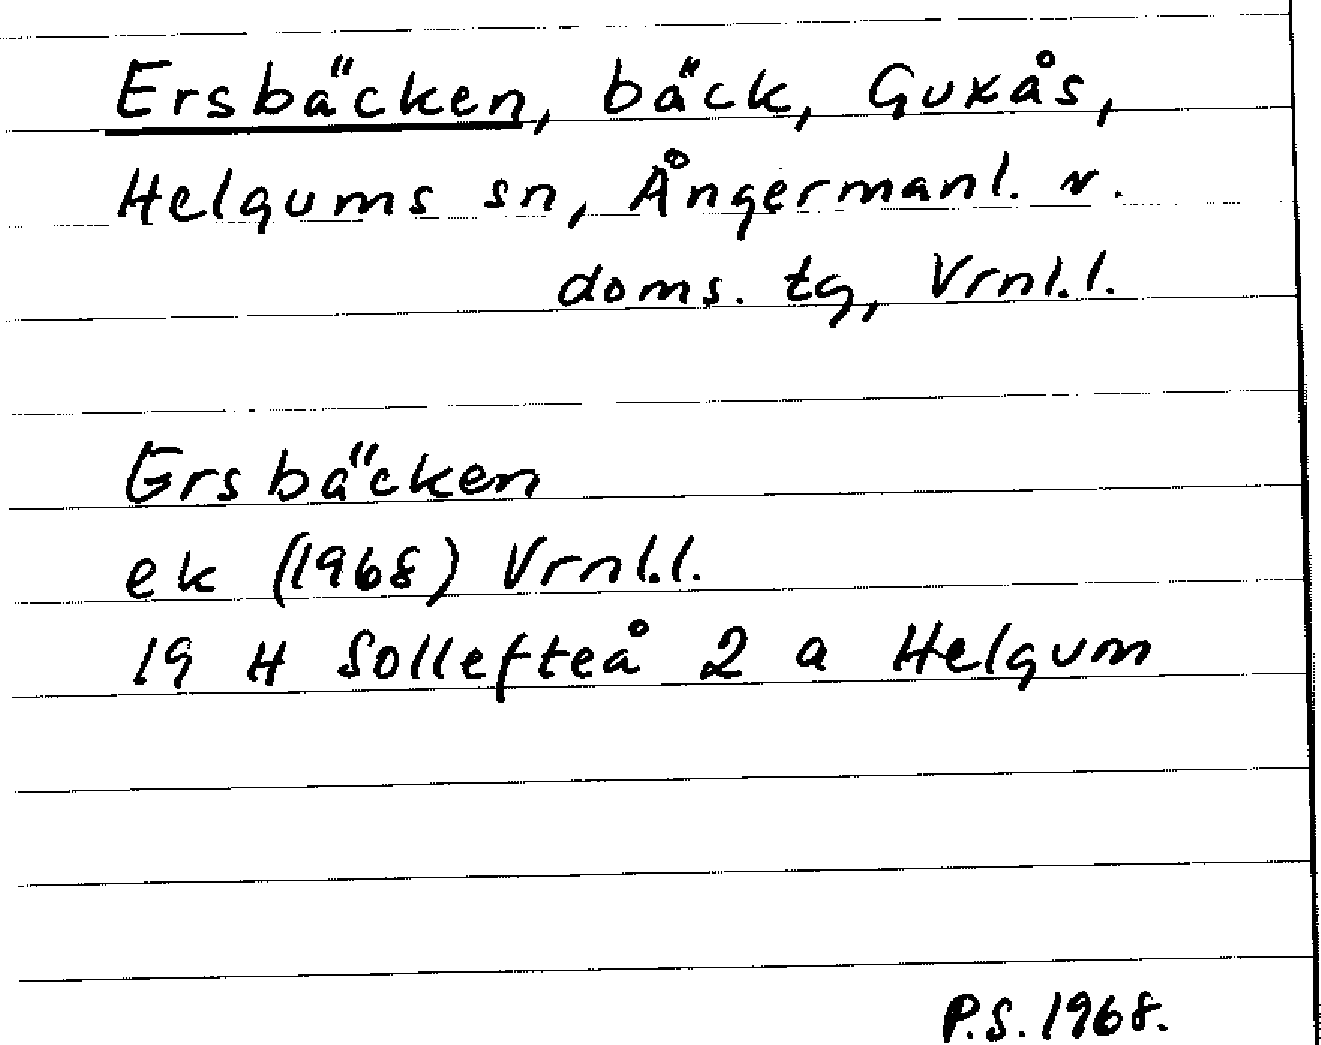 Ersbäcken, bäck, Guxås,
Helgums sn, Ångermanl. v.
doms. tg, Vrnl.l.
Ersbäcken
ek (1968) Vrnl.l.
19 H Sollefteå 2 a Helgum
P.S. 1968.